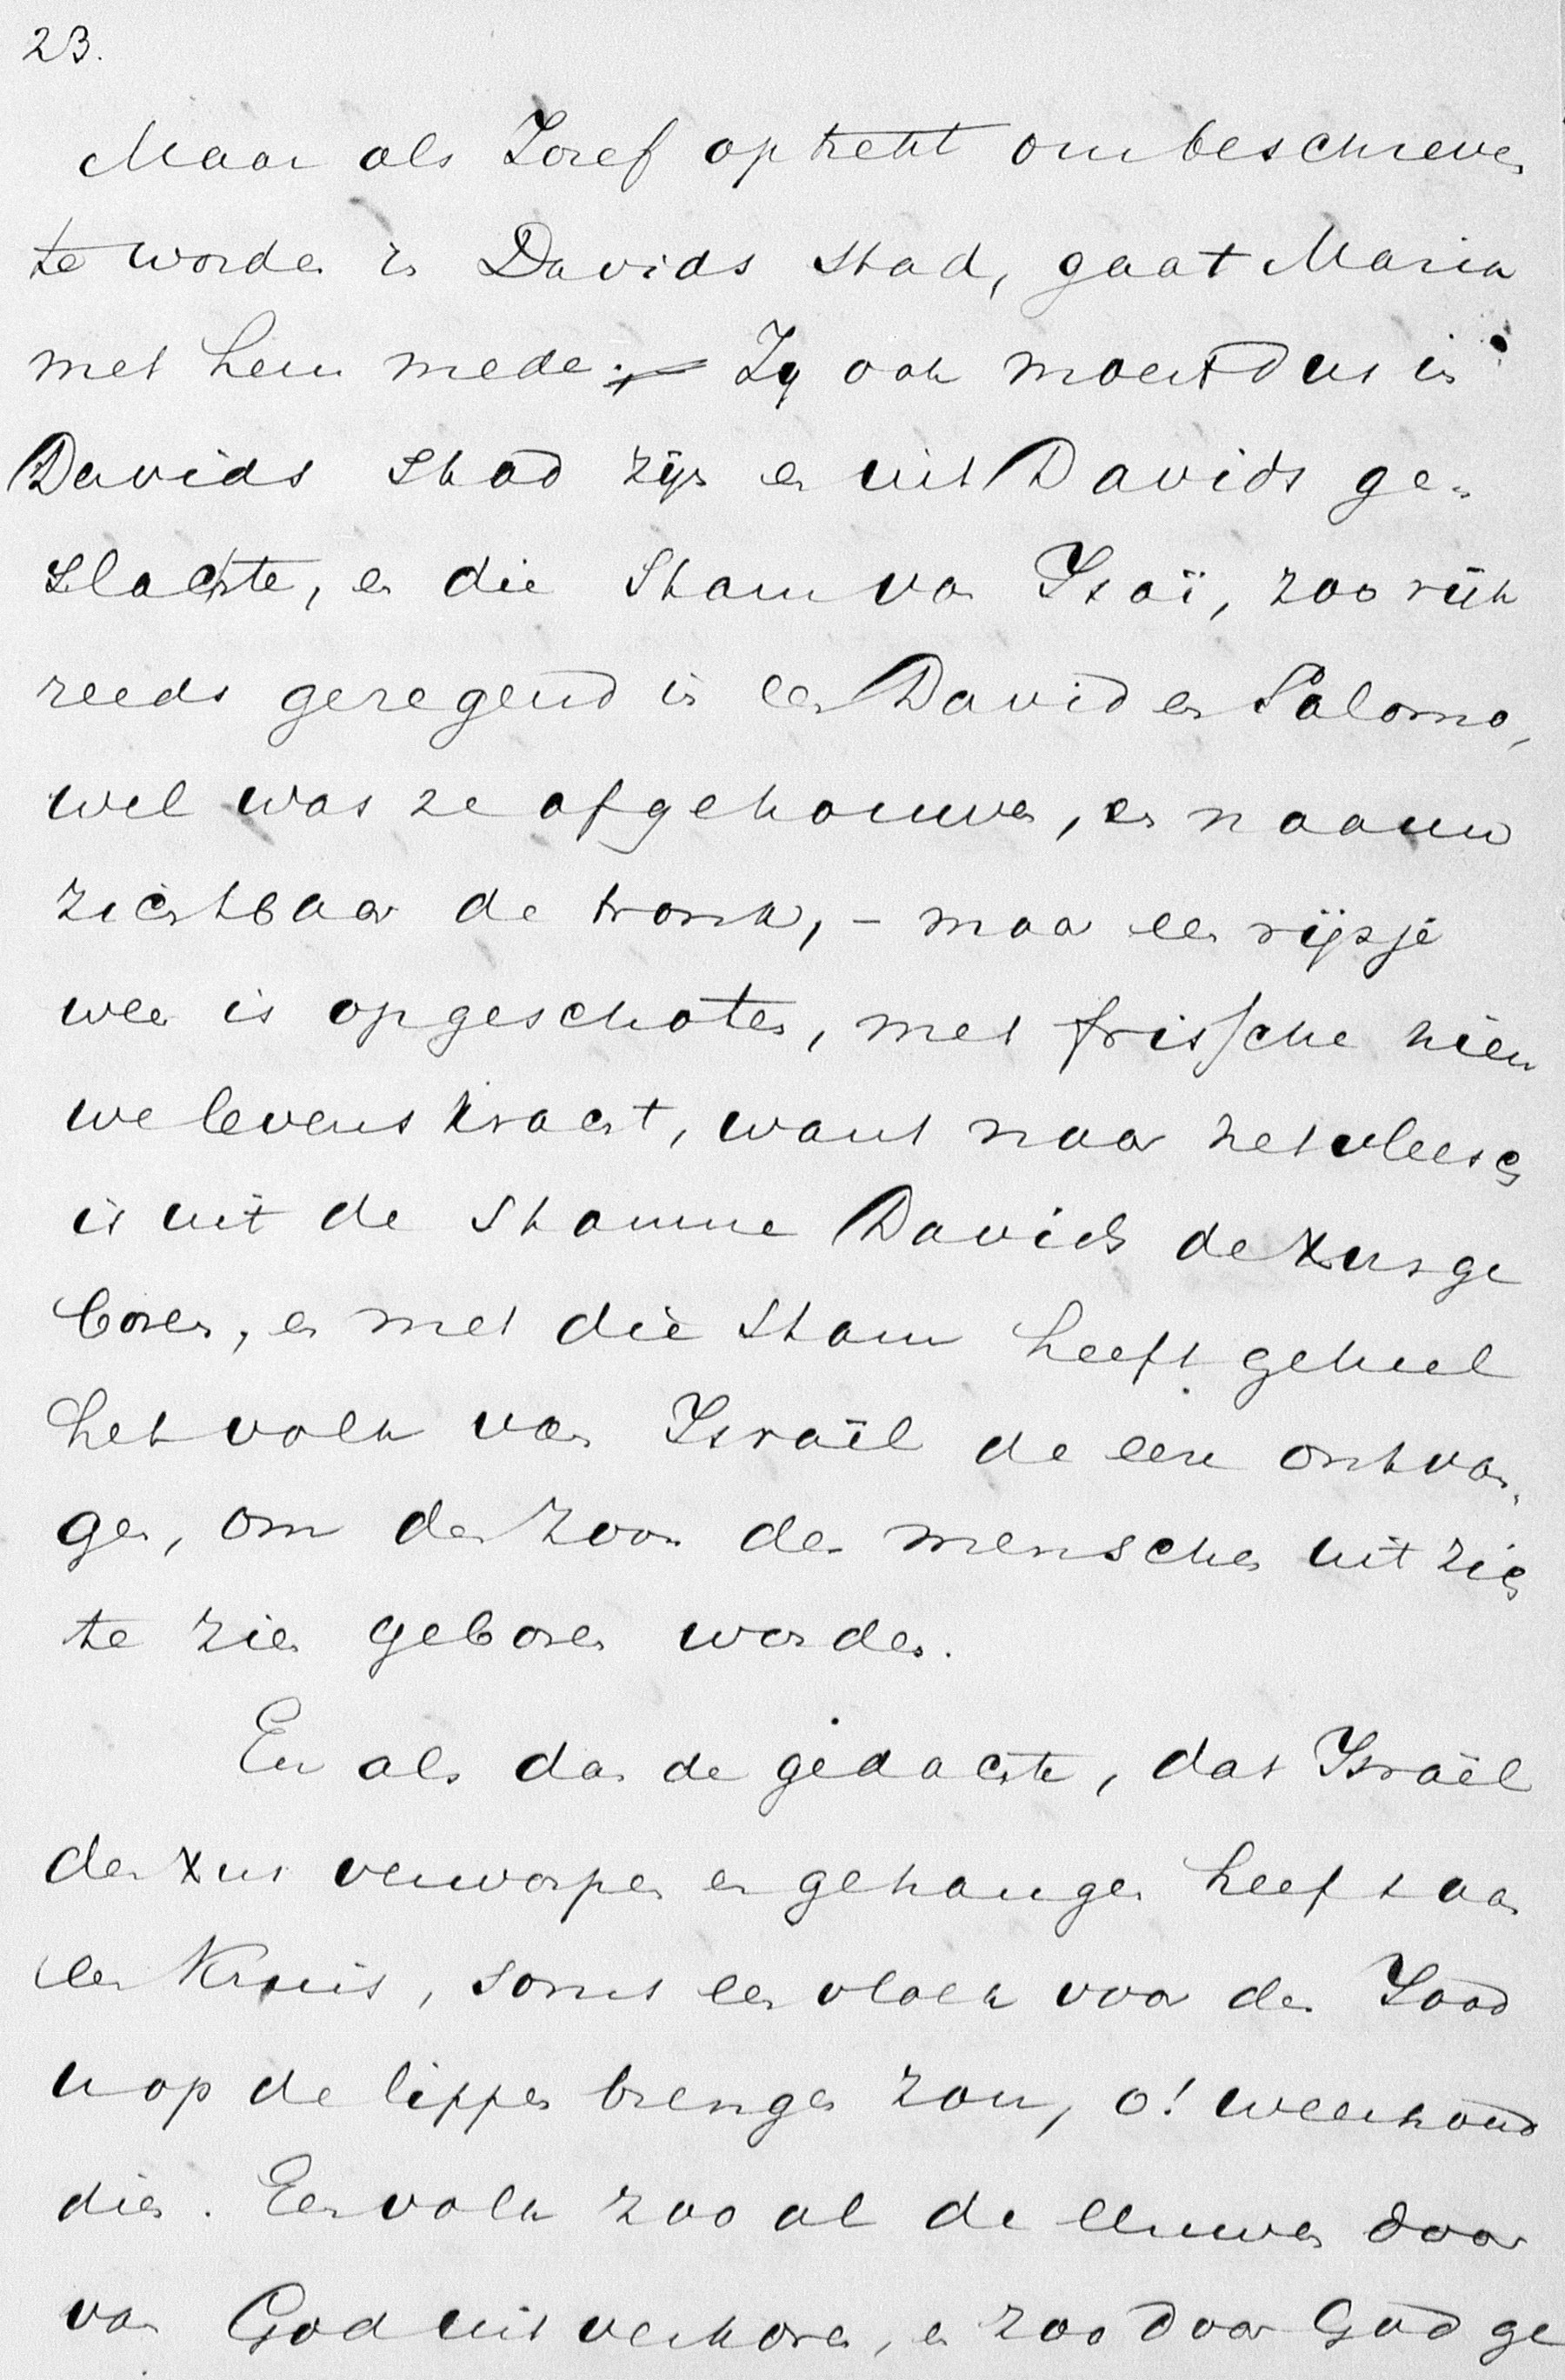 23.
Maar als Jozef optrekt om beschreven
te worden in Davids stad, gaat Maria
met hem mede. Zij ook moest dus in
Davids stad zijn en uit Davids ge-
slachte, en die stam van Isaï, zoo rijk
reeds gezegend in een David en Salomo,
wel was ze afgehouwen, en naauw
zichtbaar de tronk, - maar een rijsje
weer is opgeschoten, met frissche nieu
we levenskracht, want naar het vleesch
is uit de stamme Davids de Xus ge
boren, en met die stam heeft geheel
het volk van Israël de eere ontvan-
gen, om den Zoon des menschen uit zich
te zien geboren worden.
En als dan de gedachte, dat Israël
den Xus verworpen en gehangen heeft aan
een Kruis, soms een vloek voor den Jood
u op de lippen brengen zou, o! weerhoud
dien. Een volk zoo al de eeuwen door
van God uitverkoren, en zoo door God ge